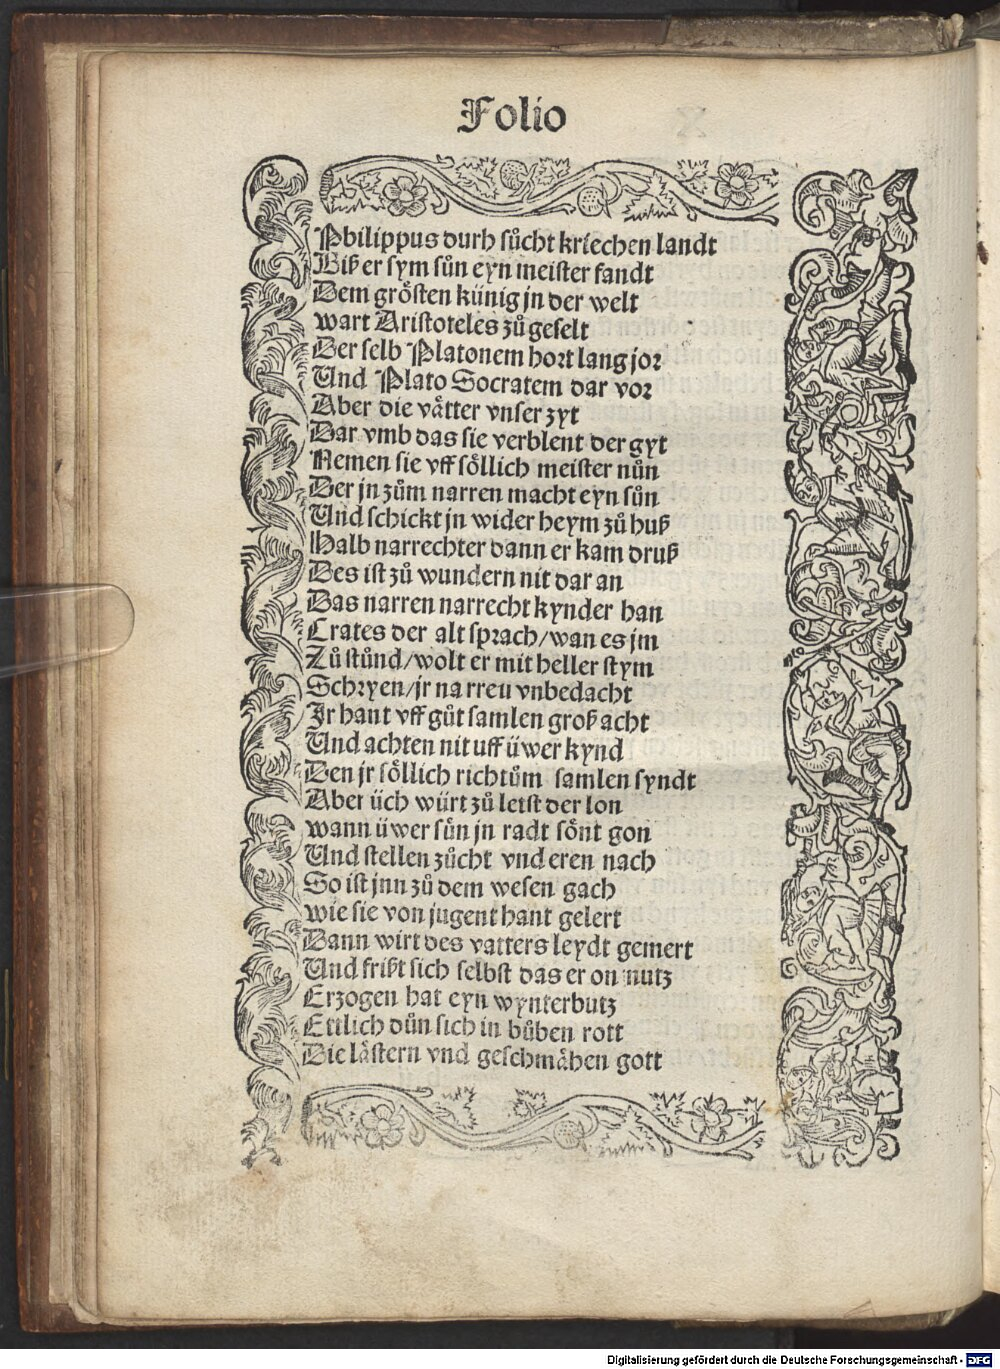 Folio
Philippus durh sůcht kriechen landt
Biß er sym sůn eyn meister fandt
Dem grösten künig jn der welt
wart Aristoteles zů geselt
Der selb Platonem hort lang jor
Und Plato Socratem dar vor
Aber die vätter vnser zyt
Dar vmb das sie verblent der gyt
Nemen sie vff söllich meister nůn
Der jn zům narren macht eyn sůn
Und schickt jn wider heym zů huß
Halb narrechter dann er kam druß
Des ist zů wundern nit dar an
Das narren narrecht kynder han
Crates der alt sprach/wan es jm
Zů stůnd/wolt er mit heller stym
Schryen/jr narreu vnbedacht
Ir hant vff gůt samlen groß acht
Und achten nit uff üwer kynd
Den jr söllich richtům samlen syndt
Aber üch würt zů letst der lon
wann üwer sůn jn radt sönt gon
Und stellen zůcht vnd eren nach
So ist jnn zů dem wesen gach
wie sie von jugent hant gelert
Dann wirt des vatters leydt gemert
Und frißt sich selbst das er on nutz
Erzogen hat eyn wynterbutz
Ettlich důn sich in bůben rott
Die lästern vnd geschmähen gott
Digitalisierung gefördert durch die Deutsche Forschungsgemeinschaft - DFG